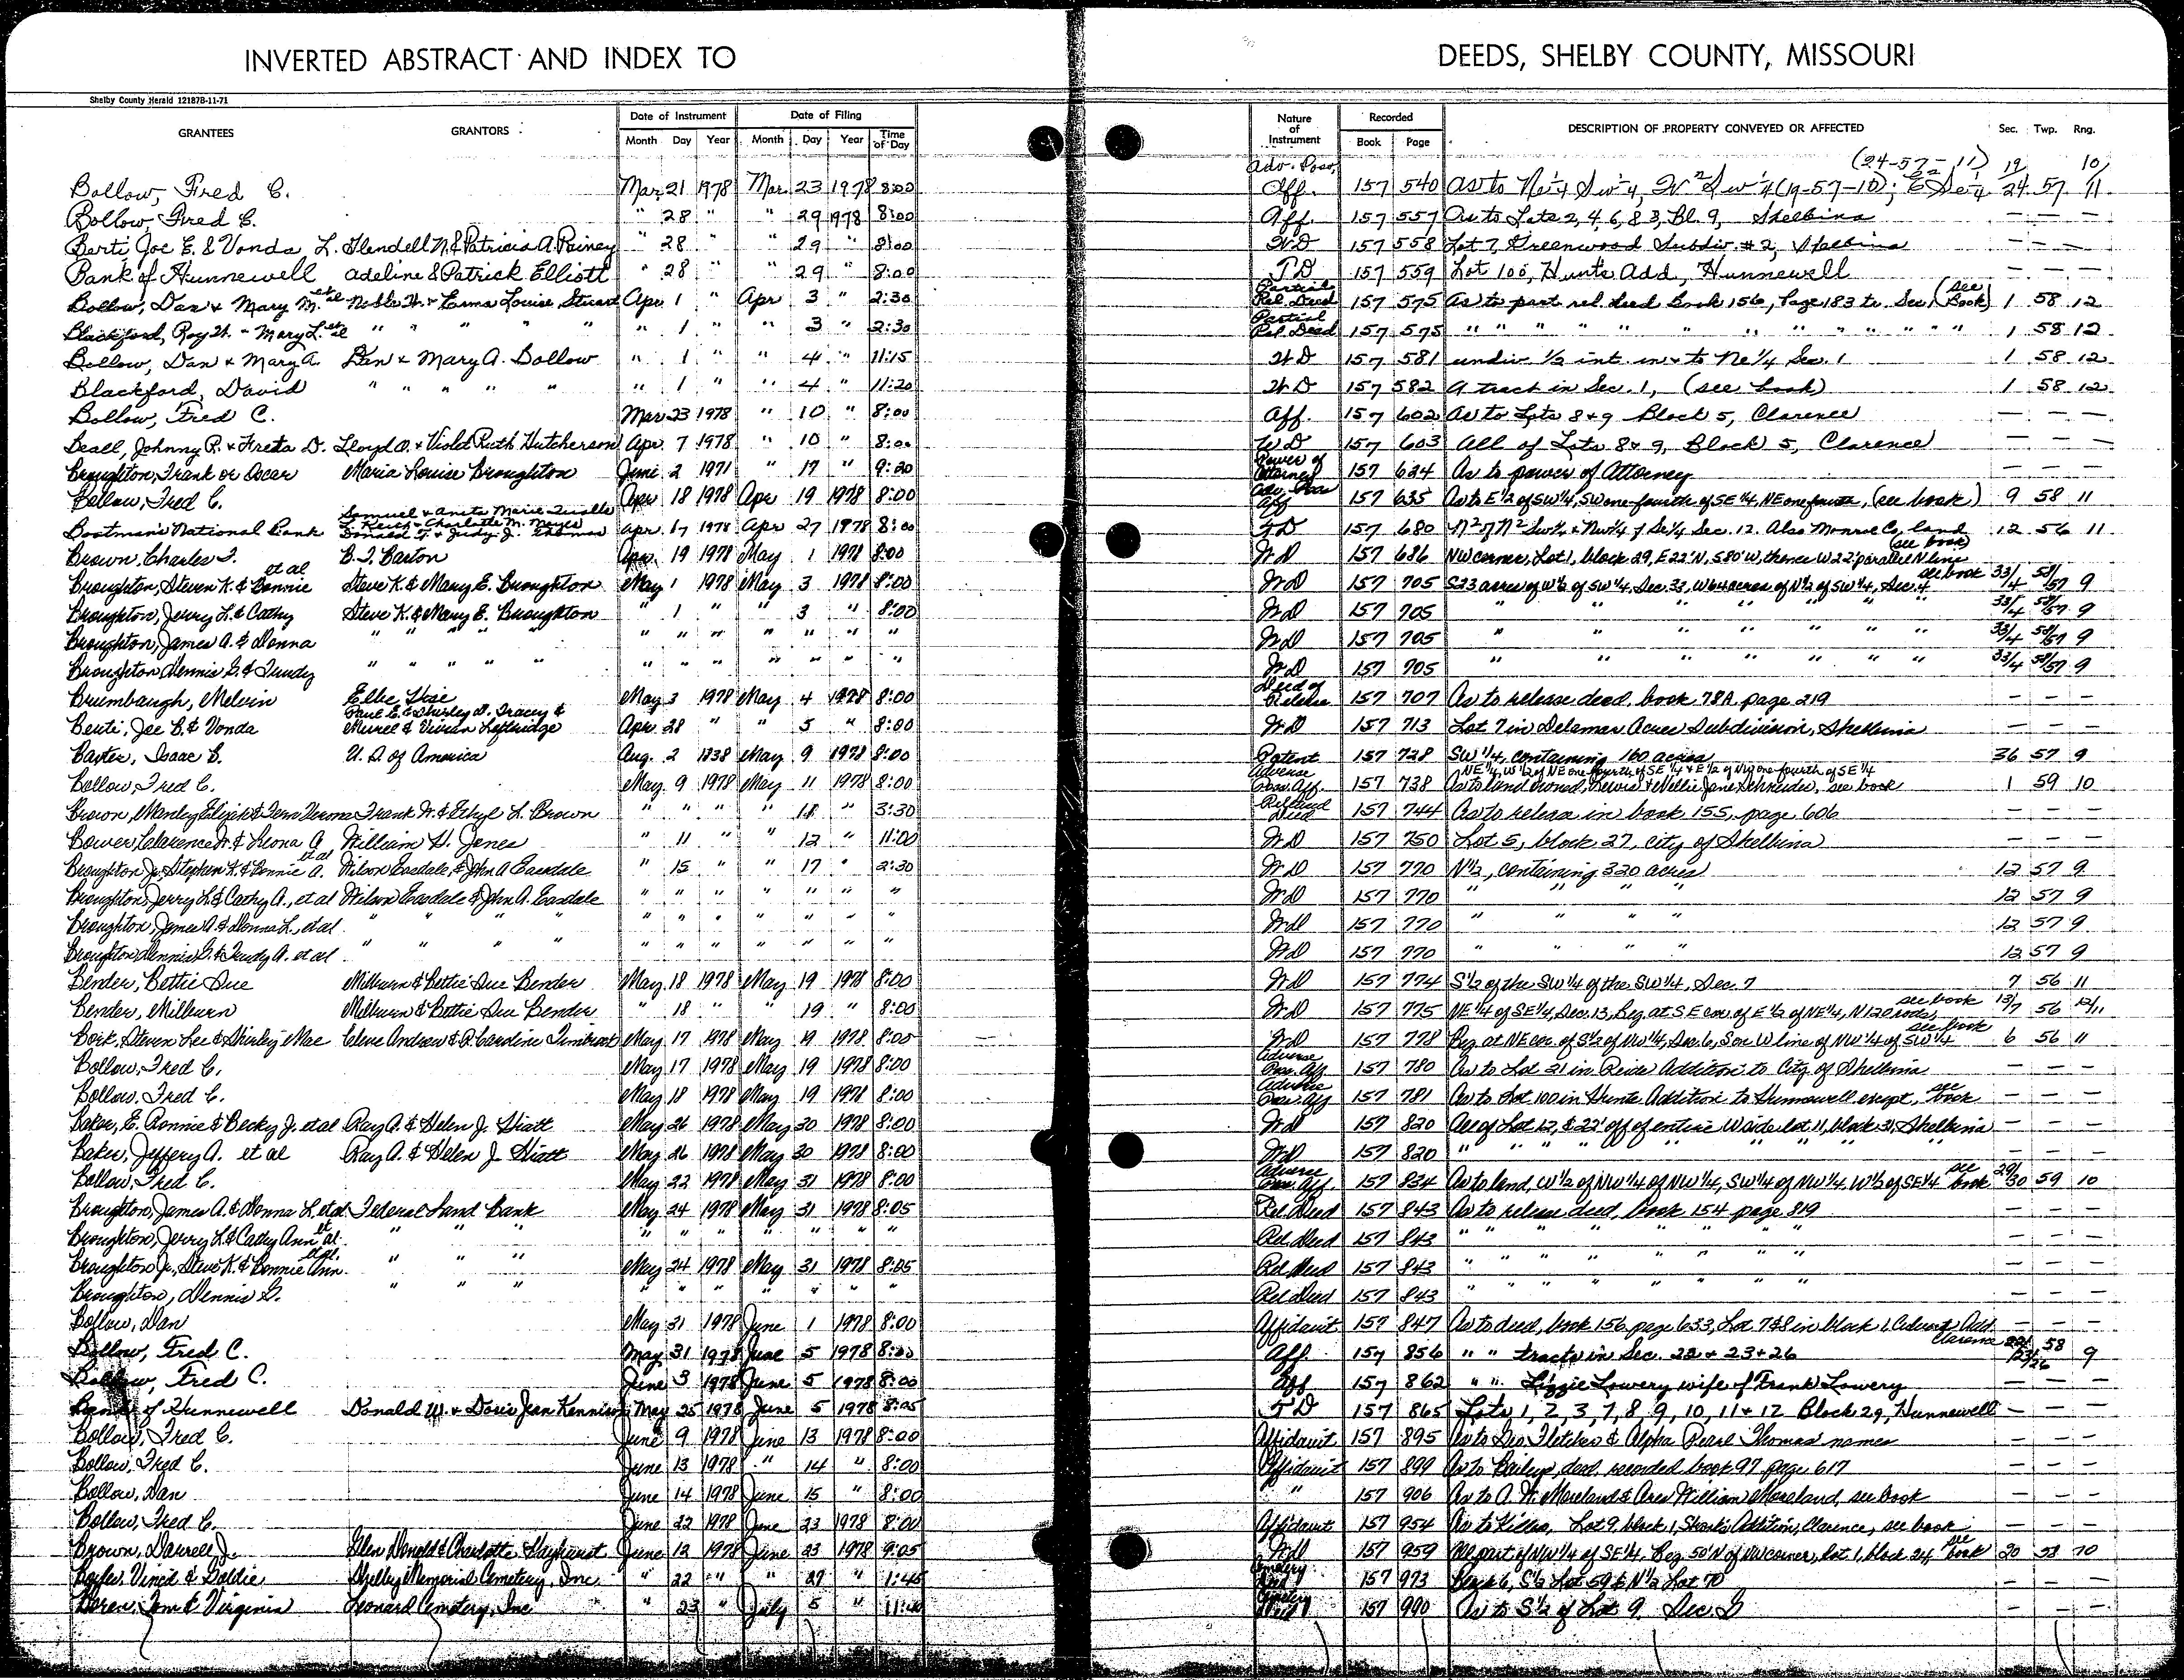 INVERTED ABSTRACT AND INDEX TO DEEDS, SHELBY COUNTY, MISSOURI
Shelby County Herald 121878-11-71
GRANTEES GRANTORS Date of Instrument Month Day Year Date of Filing Month Day Year Time of Day Nature of Instrument Recorded Book Page DESCRIPTION OF PROPERTY CONVEYED OR AFFECTED Sec. Twp. Rng.
Adv. Poss. (24-57-11) 19 10
Bollow, Fred C. Mar 21 1978 Mar. 23 1978 8:00 Aff. 157 540 As to Ne¼ Sw¼, W² Sw¼ (19-57-10); E² Se¼ 24 57 11
Bollow, Fred C. " 28 " " 29 1978 8:00 Aff. 157 557 As to Lots 2, 4, 6, 8 3, Bl. 9, Shelbina — — —
Berti, Joe E. & Vonda L. Glendell N. & Patricia A. Rainey " 28 " " 29 " 8:00 W D 157 558 Lot 7, Greenwood Subdiv. #2, Shelbina — — —
Bank of Hunnewell Adeline & Patrick Elliott " 28 " " 29 " 8:00 T D 157 559 Lot 100, Hunts Add, Hunnewell — — —
Bollow, Dan & Mary M. et al Noble H. & Erma Louise Stuart Apr 1 " Apr 3 " 2:30 Partial Rel. Deed 157 575 As to part rel. deed Book 156, Page 183 to Sec. 1 (see Book) 1 58 12
Blackford, Roy H. & Mary L. et al " " " " " " 1 " " 3 " 2:30 Partial Rel. Deed 157 575 " " " " " " " " " " " " 1 58 12
Bollow, Dan & Mary A. Dan & Mary A. Bollow " 1 " " 4 " 11:15 W D 157 581 undiv. ½ int. in & to Ne ¼ Sec. 1 1 58 12
Blackford, David " " " " " " 1 " " 4 " 11:20 W D 157 582 A tract in Sec. 1, (see book) 1 58 12
Bollow, Fred C. Mar 23 1978 " 10 " 8:00 Aff. 157 602 As to Lots 8 & 9 Block 5, Clarence — — —
Beall, Johnny R. & Freda D. Lloyd O. & Violet Ruth Hutcherson Apr. 7 1978 " 10 " 8:00 W D 157 603 All of Lots 8 & 9, Block 5, Clarence — — —
Broughton, Frank or Oscar Maria Louise Broughton June 2 1971 " 17 " 9:20 Power of Attorney 157 624 As to power of Attorney — — —
Bollow, Fred C. Apr 18 1978 Apr 19 1978 8:00 Adv. Poss Aff 157 635 As to E½ of SW¼, SW one-fourth of SE ¼, NE one fourth, (see book) 9 58 11
Boatman's National Bank Samuel & Anita Marie L. Keith & Charlotte M. Meyer Donald T. & Judy J. Thomas Apr 17 1978 Apr 27 1978 8:00 T D 157 680 N² of N² Sw¼ & Nw¼ of Se¼ Sec. 12. Also Monroe Co. land 12 56 11
Brown, Charles F. B. F. Barton Apr. 19 1978 May 1 1978 8:00 W D 157 686 NW corner, Lot 1, block 29, E 22' N, S 80' W, thence W 22' parallel N line (see book)
Broughton, Steven K. & Bonnie et al Steve K. & Mary E. Broughton May 1 1978 May 3 1978 8:00 W D 157 705 S 23 acres of W½ of SW ¼, Sec. 33, W 64 acres of N½ of SW ¼, Sec. 4 see book 33/4 58/57 9
Broughton, Jerry L. & Cathy Steve K. & Mary E. Broughton " 1 " " 3 " 8:00 W D 157 705 " " " " " " " 33/4 58/57 9
Broughton, James A. & Donna " " " " " " " " " " " " W D 157 705 " " " " " " " 33/4 58/57 9
Broughton, Dennis G. & Trudy " " " " " " " " " " " " W D 157 705 " " " " " " " 33/4 58/57 9
Brumbaugh, Melvin Ellie May 3 1978 May 4 1978 8:00 Deed of Release 157 707 As to release deed, book 78A, page 219 — — —
Berti, Joe E. & Vonda Paul E. & Shirley D. Tracey & Murrel & Vivian Loftridge Apr. 28 " " 5 " 8:00 W D 157 713 Lot 7 in Delamar Acres Subdivision, Shelbina — — —
Baxter, Isaac C. U. S. of America Aug. 2 1838 May 9 1978 8:00 Patent 157 728 SW ¼, containing 160 acres 36 57 9
Bollow, Fred C. May 9 1978 May 11 1978 8:00 Adverse Poss. Aff. 157 738 NE ¼, W ½ of NE one-fourth of SE ¼ & E ½ of NW one-fourth of SE ¼ As to land owned, Lewis & Nellie Jane Schneider, see book 1 59 10
Brown, Manley Elijah & Fern Verona Frank W. & Ethyl L. Brown " " " " 11 " 3:30 Release Deed 157 744 As to release in book 155, page 606 — — —
Bower, Clarence W. & Leona A. William H. Jones " 11 " " 12 " 11:00 W D 157 750 Lot 5, block 27, city of Shelbina — — —
Broughton Jr, Stephen K. & Bonnie A. et al Wilson Easdale, & John A. Easdale " 15 " " 17 " 2:30 W D 157 770 N½, containing 320 acres 12 57 9
Broughton, Jerry L. & Cathy A., et al Wilson Easdale & John A. Easdale " " " " " " " W D 157 770 " " " " 12 57 9
Broughton, James A. & Donna L., et al " " " " " " " " " " " W D 157 770 " " " " 12 57 9
Broughton, Dennis G. & Trudy A. et al " " " " " " " " " " " W D 157 770 " " " " 12 57 9
Bender, Bettie Sue Milburn & Bettie Sue Bender May 18 1978 May 19 1978 8:00 W D 157 774 S½ of the SW ¼ of the SW ¼, Sec. 7 7 56 11
Bender, Milburn Milburn & Bettie Sue Bender " 18 " " 19 " 8:00 W D 157 775 NE ¼ of SE ¼, Sec. 13, Beg. at SE cor. of E ½ of NE ¼, N 120 rods, see book 13/7 56 12/11
Bock, Steven Lee & Shirley Mae Cleve Andrew & R. Caroline Timbrook May 17 1978 May 19 1978 8:05 W D 157 778 Beg. at NE cor. of S½ of NW ¼, Sec. 6, S on W line of NW ¼ of SW ¼ see book 6 56 11
Bollow, Fred C. May 17 1978 May 19 1978 8:00 Adverse Poss. Aff 157 780 As to Lot 21 in Reids Addition to City of Shelbina — — —
Bollow, Fred C. May 18 1978 May 19 1978 8:00 Adverse Poss. Aff 157 781 As to Lot 100 in Hunts Addition to Hunnewell except, see book — — —
Baker, E. Ronnie & Becky J. et al Ray A. & Helen J. Hiatt May 26 1978 May 30 1978 8:00 W D 157 820 All of Lot 12, & 22' off of entire W side lot 11, block 31, Shelbina — — —
Baker, Jeffery A. et al Ray A. & Helen J. Hiatt May 26 1978 May 30 1978 8:00 W D 157 820 " " " " " " " " — — —
Bollow, Fred C. May 22 1978 May 31 1978 8:00 Adverse Poss. Aff. 157 834 As to land, W ½ of NW ¼ of NW ¼, SW ¼ of NW ¼, W½ of SE ¼ see book 29/30 59 10
Broughton, James A. & Donna L. et al Federal Land Bank May 24 1978 May 31 1978 8:05 Rel. Deed 157 843 As to release deed, book 154 page 819 — — —
Broughton, Jerry L. & Cathy Ann et al. " " " " " " " " " " Rel. Deed 157 843 " " " " " " " — — —
Broughton Jr., Steve K. & Bonnie Ann et al. " " " May 24 1978 May 31 1978 8:05 Rel. Deed 157 843 " " " " " " " — — —
Broughton, Dennis G. " " " " " " " " " " Rel. Deed 157 843 " " " " " " " — — —
Bollow, Dan May 31 1978 June 1 1978 8:00 Affidavit 157 847 As to deed, book 156 page 633, Lot 7 & 8 in block 1, Add. Clarence — — —
Bollow, Fred C. May 31 1978 June 5 1978 8:00 Aff. 157 856 " " tracts in Sec. 22 & 23 & 26 22/23/26 58 9
Bollow, Fred C. June 3 1978 June 5 1978 8:00 Aff 157 862 " " Lizzie Lowery wife of Frank Lowery — — —
Bank of Hunnewell Donald W. & Doris Jean Kennison May 25 1978 June 5 1978 8:05 T D 157 865 Lots 1, 2, 3, 7, 8, 9, 10, 11 & 12 Block 29, Hunnewell — — —
Bollow, Fred C. June 9 1978 June 13 1978 8:00 Affidavit 157 895 As to Fletcher & Alpha Pearl Thomas names — — —
Bollow, Fred C. June 13 1978 " 14 " 8:00 Affidavit 157 899 As to Bailey, deed recorded book 97 page 617 — — —
Bollow, Dan June 14 1978 June 15 " 8:00 " 157 906 As to A. W. Moreland & Ares William Moreland, see book — — —
Bollow, Fred C. June 22 1978 June 23 1978 8:00 Affidavit 157 954 As to Lot 9, block 1, Addition, Clarence, see book — — —
Brown, Darrell J. Glen Donald & Charlotte Hayhurst June 12 1978 June 23 1978 9:05 W D 157 959 All part of NW ¼ of SE ¼, Beg. 50' N of NW corner, Lot 1, block 24 see book 20 58 10
Vencil & Goldie Shelby Memorial Cemetery, Inc. " 22 " " 27 " 1:45 Cemetery Deed 157 973 6, S½ Lot 59 & N½ Lot 70 — — —
Tom & Virginia Leonard Cemetery, Inc " 23 " July 5 " 11:00 Cemetery Deed 157 990 As to S½ of Lot 9, Sec. D — — —